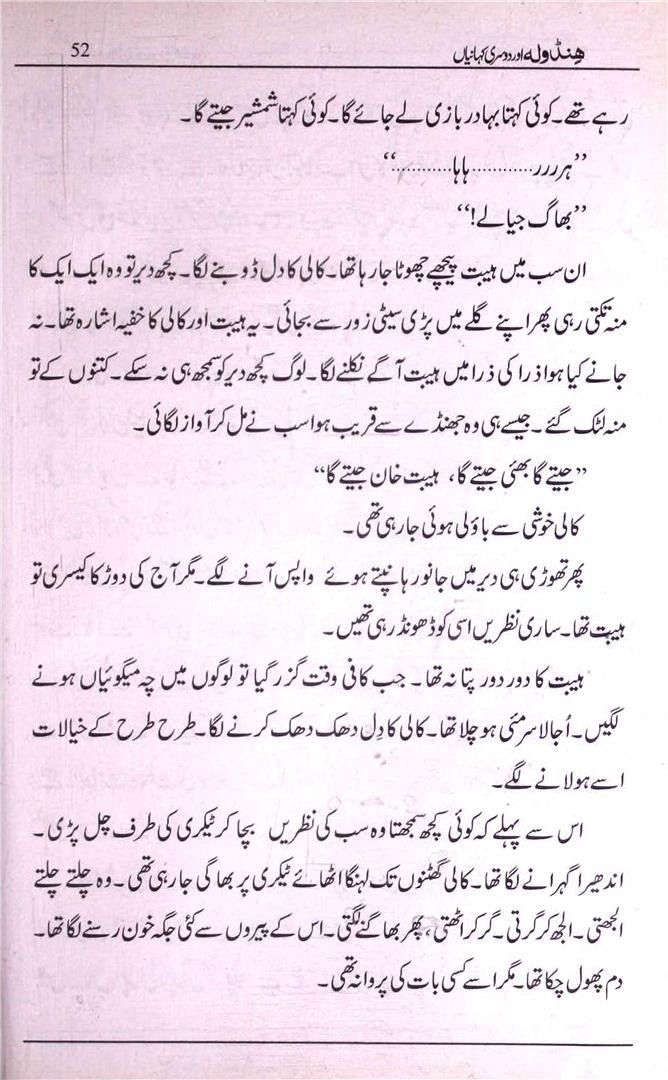 ہنڈولہ اور دوسری کہانیاں 52
رہے تھے۔ کوئی کہتا بہادر بازی لے جائے گا۔ کوئی کہتا شمشیر جیتے گا۔
”ہررر............ہاہا...........“
”بھاگ جیالے!“
ان سب میں ہیبت پیچھے چھوٹا جا رہا تھا۔ کالی کا دل ڈوبنے لگا۔ کچھ دیر تو وہ ایک ایک کا
منہ تکتی رہی پھر اپنے گلے میں پڑی سیٹی زور سے بجائی۔ یہ ہیبت اور کالی کا خفیہ اشارہ تھا۔ نہ
جانے کیا ہوا ذرا کی ذرا میں ہیبت آگے نکلنے لگا۔ لوگ کچھ دیر کو سمجھ ہی نہ سکے۔ کتنوں کے تو
منہ لٹک گئے۔ جیسے ہی وہ جھنڈے سے قریب ہوا سب نے مل کر آواز لگائی۔
”جیتے گا بھئی جیتے گا، ہیبت خان جیتے گا“
کالی خوشی سے باؤلی ہوئی جا رہی تھی۔
پھر تھوڑی ہی دیر میں جانور ہانپتے ہوئے واپس آنے لگے۔ مگر آج کی دوڑ کا کیسری تو
ہیبت تھا۔ ساری نظریں اسی کو ڈھونڈ رہی تھیں۔
ہیبت کا دور دور پتا نہ تھا۔ جب کافی وقت گزر گیا تو لوگوں میں چہ میگوئیاں ہونے
لگیں۔ اُجالا سرمئی ہو چلا تھا۔ کالی کا دِل دھک دھک کرنے لگا۔ طرح طرح کے خیالات
اسے ہولانے لگے۔
اس سے پہلے کہ کوئی کچھ سمجھتا وہ سب کی نظریں بچا کر ٹیکری کی طرف چل پڑی۔
اندھیرا گہرانے لگا تھا۔ کالی گھٹنوں تک لہنگا اٹھائے ٹیکری پر بھاگی جا رہی تھی۔ وہ چلتے چلتے
الجھتی۔ الجھ کر گرتی۔ گر کر اٹھتی، پھر بھاگنے لگتی۔ اس کے پیروں سے کئی جگہ خون رسنے لگا تھا۔
دم پھول چکا تھا۔ مگر اسے کسی بات کی پروا نہ تھی۔